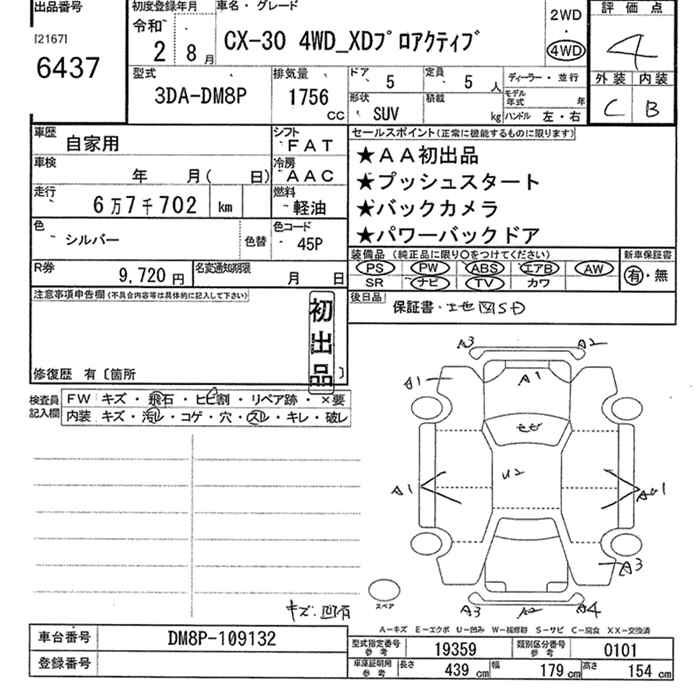 出品番号
[2167]
6437
初度登録年月
令和
2 8月
車名・グレード
CX-30 4WD_XDプロアクティブ
2WD
・
4WD
評価点
4
外装 内装
C B
型式
3DA-DM8P
排気量
1756
cc
ドア
5
定員
5 人
ディーラー・並行
モデル年式 年
形状
SUV
積載
kg
ハンドル 左・右
車歴
自家用
シフト
FAT
車検
年 月( 日)
冷房
AAC
走行
6万7千702 km
燃料
軽油
色
シルバー
色替
色コード
45P
R券
9,720 円
名変通知期限
月 日
セールスポイント(正常に機能するものに限ります)
★AA初出品
★プッシュスタート
★バックカメラ
★パワーバックドア
装備品 (純正品に限り○をつけてください)
PS PW ABS エアB AW
SR ナビ TV カワ
新車保証書
有・無
後日品
保証書・
注意事項申告欄(不具合内容等は具体的に記入して下さい)
初出品
修復歴 有〔箇所 〕
検査員記入欄
FW キズ・飛石・ヒビ割・リペア跡・×要
内装 キズ・汚レ・コゲ・穴・スレ・キレ・破レ
A3 A2
A1 A1
U2
A1 A1
A3
A3 A4
スペア
キズ、凹有
A-キズ E-エクボ U-凹み W-補修跡 S-サビ C-腐食 XX-交換済
車台番号
DM8P-109132
登録番号
型式指定番号 参考
19359
類別区分番号 参考
0101
車庫証明用 参考
長さ 439 cm
幅 179 cm
高さ 154 cm